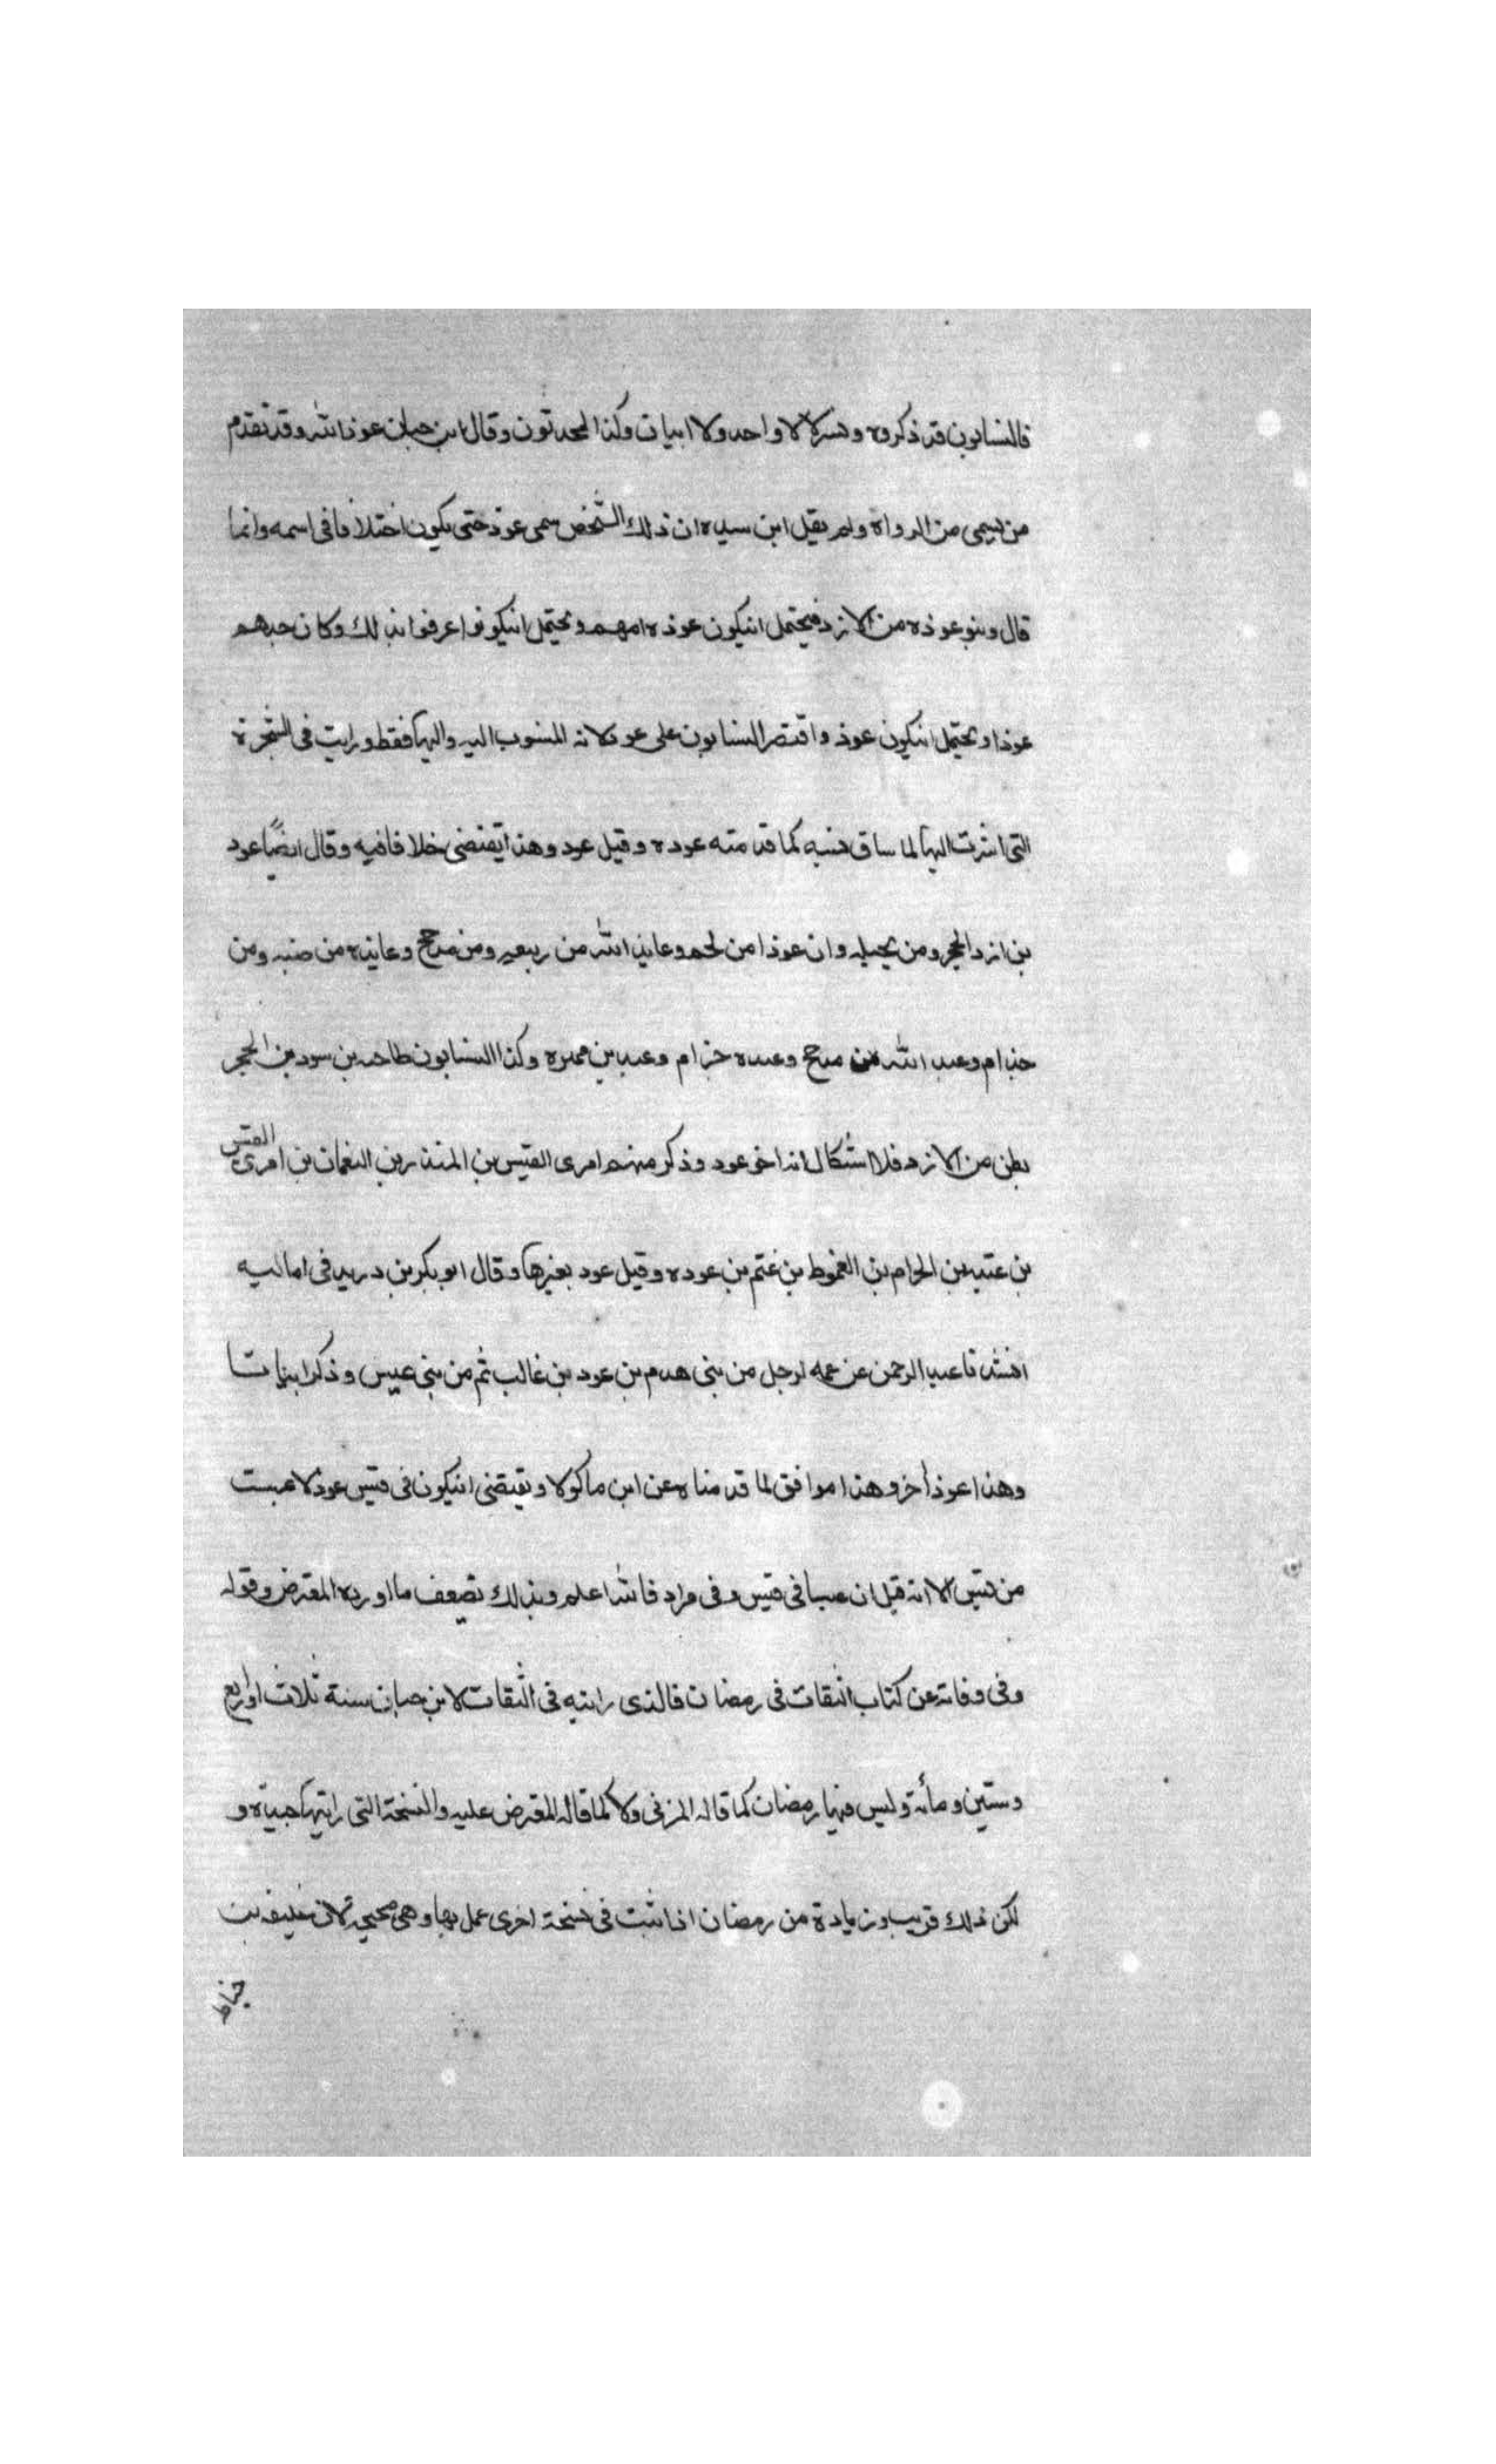 فالنسابون قد ذكروه وهم لا واحد ولا ابيات وكذا المحدثون وقال ابن حبان عوذ الله وقد تقدم
من يسمى من الرواة ولم يقل ابن سيده ان ذلك الشخص سمى عوذ حتى يكون اختلافا فى اسمه وانما
قال وبنو عوذه من الازد فيحتمل انيكون عوذه امهم ويحتمل انيكونوا عرفوا بذلك وكان جدهم
عوذا ويحتمل انيكون عوذ واقتصر النسابون على عوذ لانه المنسوب اليه واليها فقط ورايت فى الشجرة
التى اشرت اليها لما ساق نسبه كما قدمته عوده وقيل عود وهذا يقتضى خلافا فيه وقال ايضًا عود
بن ازد الحجر ومن بجيله وان عوذا من لخم وعايذ الله من ربيعه ومن مدحج وعايذه من ضبه ومن
جذام وعبد الله من مدحج وعبده حزام وعبد بن عميره وكذا النسابون طاحه بن سود من الحجر
بطن من الازد فلا اشكال انه اخو عود وذكر منهم امرى القيس بن المنذر بن النعمان بن امرى القيس
بن عتبه بن الحرام بن الغموط بن غتم بن عوده وقيل عود بغيرها وقال ابو بكر بن دريد فى اماليه
انشدنا عبد الرحمن عن عمه لرجل من بنى هدم بن عود بن غالب ثم من بنى عبس وذكر ابياتا
وهذا عوذ اخر وهذا موافق لما قدمناه عن ابن ماكولا ويقتضى انيكون فى قيس عوذ لا عبست
من قيس الا انه قيل ان عبسا فى قيس وفى مراد فالله اعلم وبذلك تضعف ما اورده المعترض وقوله
وفى وفاته عن كتاب الثقات فى رمضان فالذى رايته فى الثقات لابن حبان سنة ثلاث او اربع
وستين ومائة وليس فيها رمضان كما قاله المزنى ولا كما قاله المعترض عليه والنسخة التى رايتها جيدة و
لكن ذلك قريب وزيادة من رمضان اذا ثبت فى نسخة اخرى عمل بها وهى صحيحه لان خليفه بن
خياط